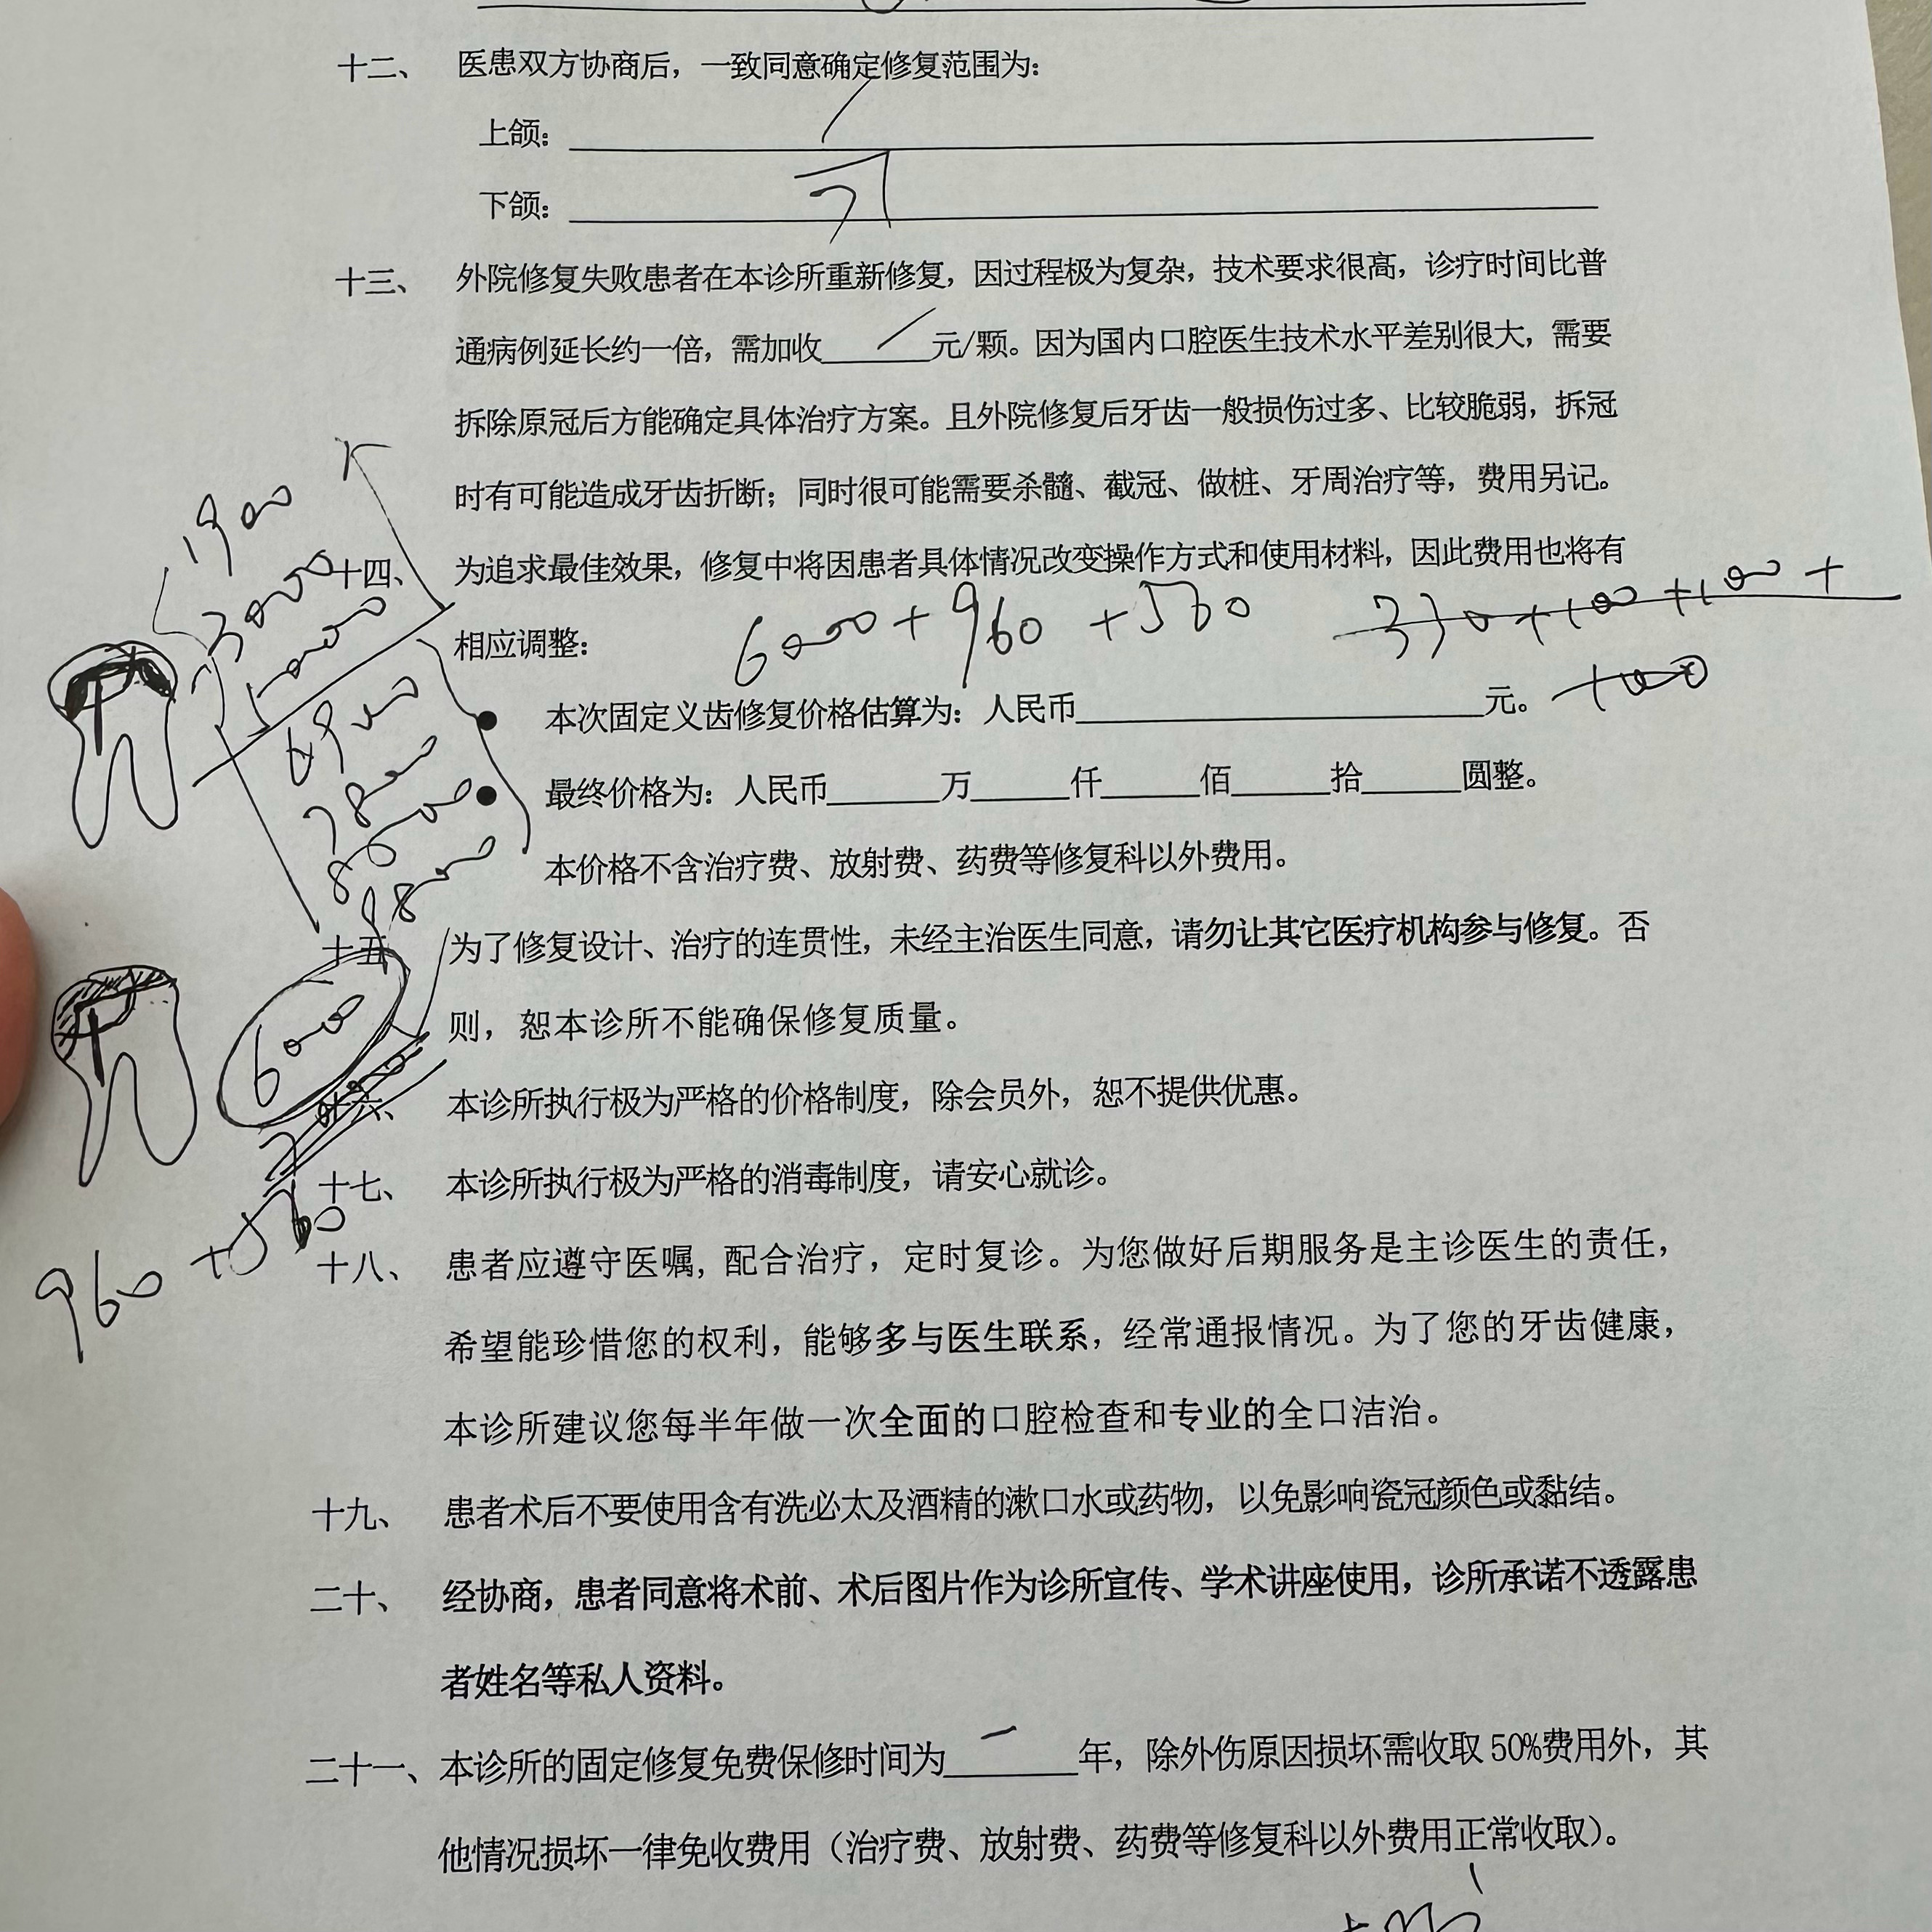 十二、 医患双方协商后，一致同意确定修复范围为：
上颌：
下颌： 7
十三、 外院修复失败患者在本诊所重新修复，因过程极为复杂，技术要求很高，诊疗时间比普
通病例延长约一倍，需加收____元/颗。因为国内口腔医生技术水平差别很大，需要
拆除原冠后方能确定具体治疗方案。且外院修复后牙齿一般损伤过多、比较脆弱，拆冠
时有可能造成牙齿折断；同时很可能需要杀髓、截冠、做桩、牙周治疗等，费用另记。
十四、 为追求最佳效果，修复中将因患者具体情况改变操作方式和使用材料，因此费用也将有
相应调整：
6000+960+560
330+100+100+
100
● 本次固定义齿修复价格估算为：人民币____元。
● 最终价格为：人民币____万____仟____佰____拾____圆整。
本价格不含治疗费、放射费、药费等修复科以外费用。
1900
3000
5000
6900
7800
8600
9800
6000
960+560
十五、 为了修复设计、治疗的连贯性，未经主治医生同意，请勿让其它医疗机构参与修复。否
则，恕本诊所不能确保修复质量。
十六、 本诊所执行极为严格的价格制度，除会员外，恕不提供优惠。
十七、 本诊所执行极为严格的消毒制度，请安心就诊。
十八、 患者应遵守医嘱，配合治疗，定时复诊。为您做好后期服务是主诊医生的责任，
希望能珍惜您的权利，能够多与医生联系，经常通报情况。为了您的牙齿健康，
本诊所建议您每半年做一次全面的口腔检查和专业的全口洁治。
十九、 患者术后不要使用含有洗必太及酒精的漱口水或药物，以免影响瓷冠颜色或黏结。
二十、 经协商，患者同意将术前、术后图片作为诊所宣传、学术讲座使用，诊所承诺不透露患
者姓名等私人资料。
二十一、本诊所的固定修复免费保修时间为一年，除外伤原因损坏需收取50%费用外，其
他情况损坏一律免收费用（治疗费、放射费、药费等修复科以外费用正常收取）。